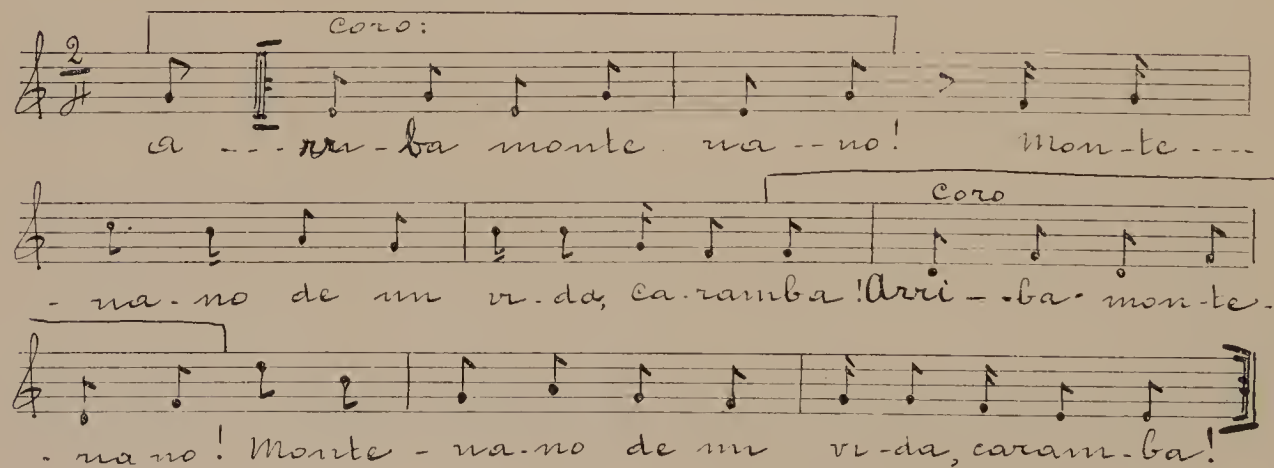 coro:
2
4
a ---rri-ba monte na--no! Mon-te----
coro
- na-no de mi vi-da, ca-ramba! Arri--ba- mon-te-
- na no! Monte - na-no de mi vi-da, caram-ba!